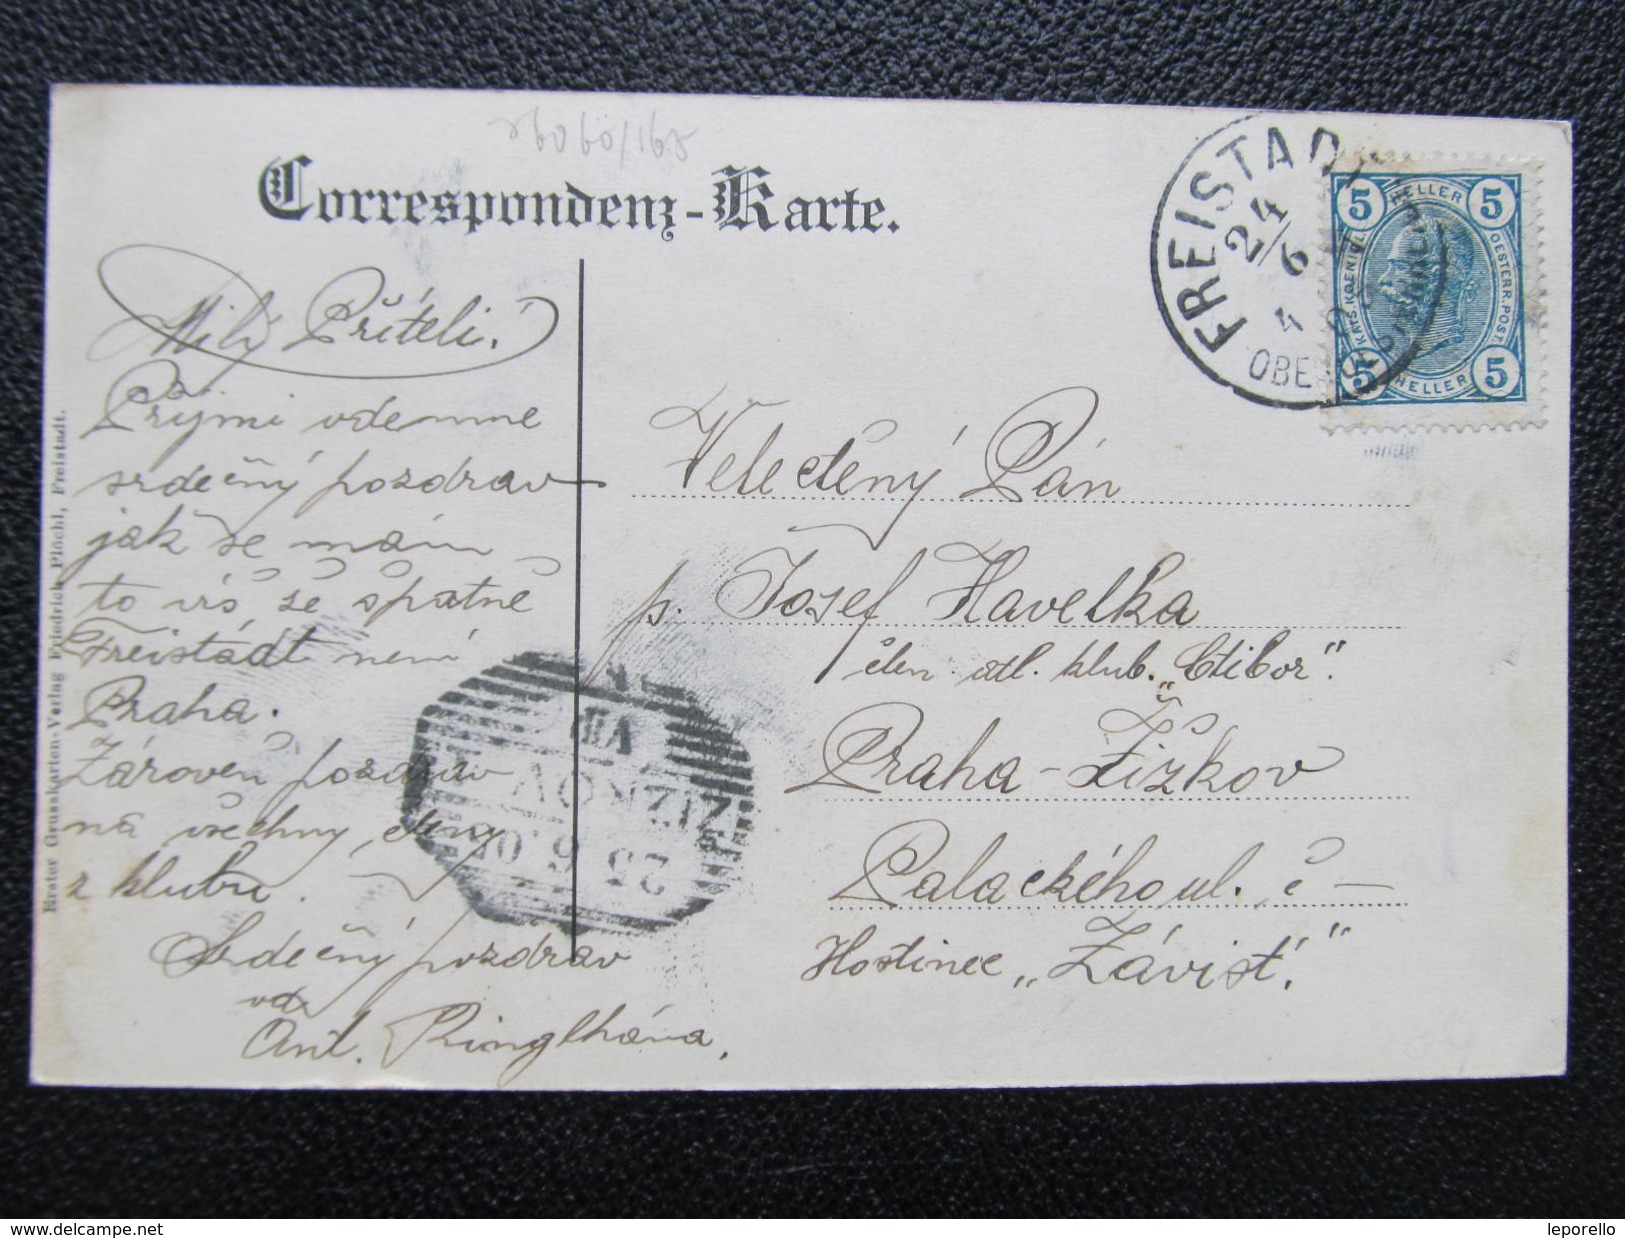 Correspondenz-Karte.
Milý Příteli!
Přijmi odemne
srdečný pozdrav
jak se mám
to víš že špatně
Freistádt není
Praha.
Zároveň pozdrav
na všechny členy
z klubu.
Srdečný pozdrav
od
Ant. Ringlhána.
Erster Grusskarten-Verlag Friedrich Plöchl, Freistadt.
FREISTAD
24/6
OBE
5 HELLER 5
KAIS. KOENIGL.
OESTERR. POST.
5 HELLER 5
Velectěný Pán
p. Josef Havelka
člen atl. klub. „Ctibor“.
Praha-Žižkov
Palackého ul. č —
Hostinec „Závist“.
ŽIŽKOV
25 6 06
delcampe.net
leporello